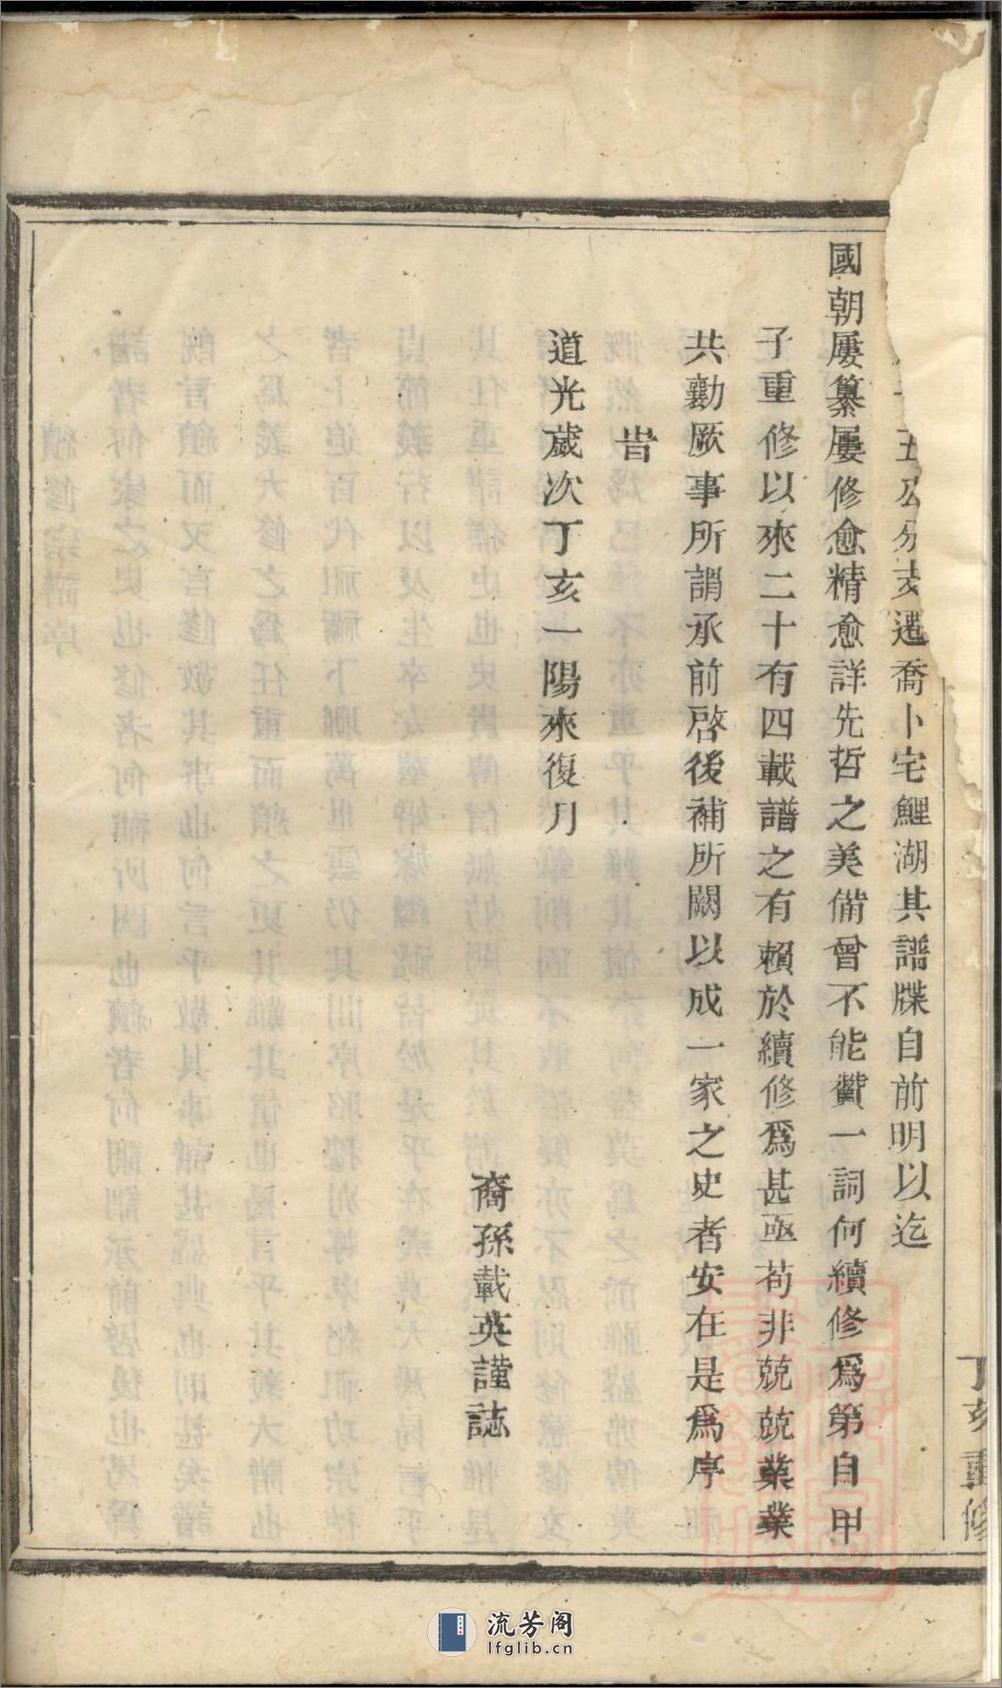 五公分支遷喬卜宅鯉湖其譜牒自前明以迄
國朝屢纂屢修愈精愈詳先哲之美備曾不能贊一詞何續修爲第自甲
子重修以來二十有四載譜之有賴於續修爲甚亟苟非兢兢業業
共勷厥事所謂承前啓後補所闕以成一家之史者安在是爲序
旹
道光歲次丁亥一陽來復月
裔孫載英謹誌
丁亥重修
流芳阁
lfglib.cn